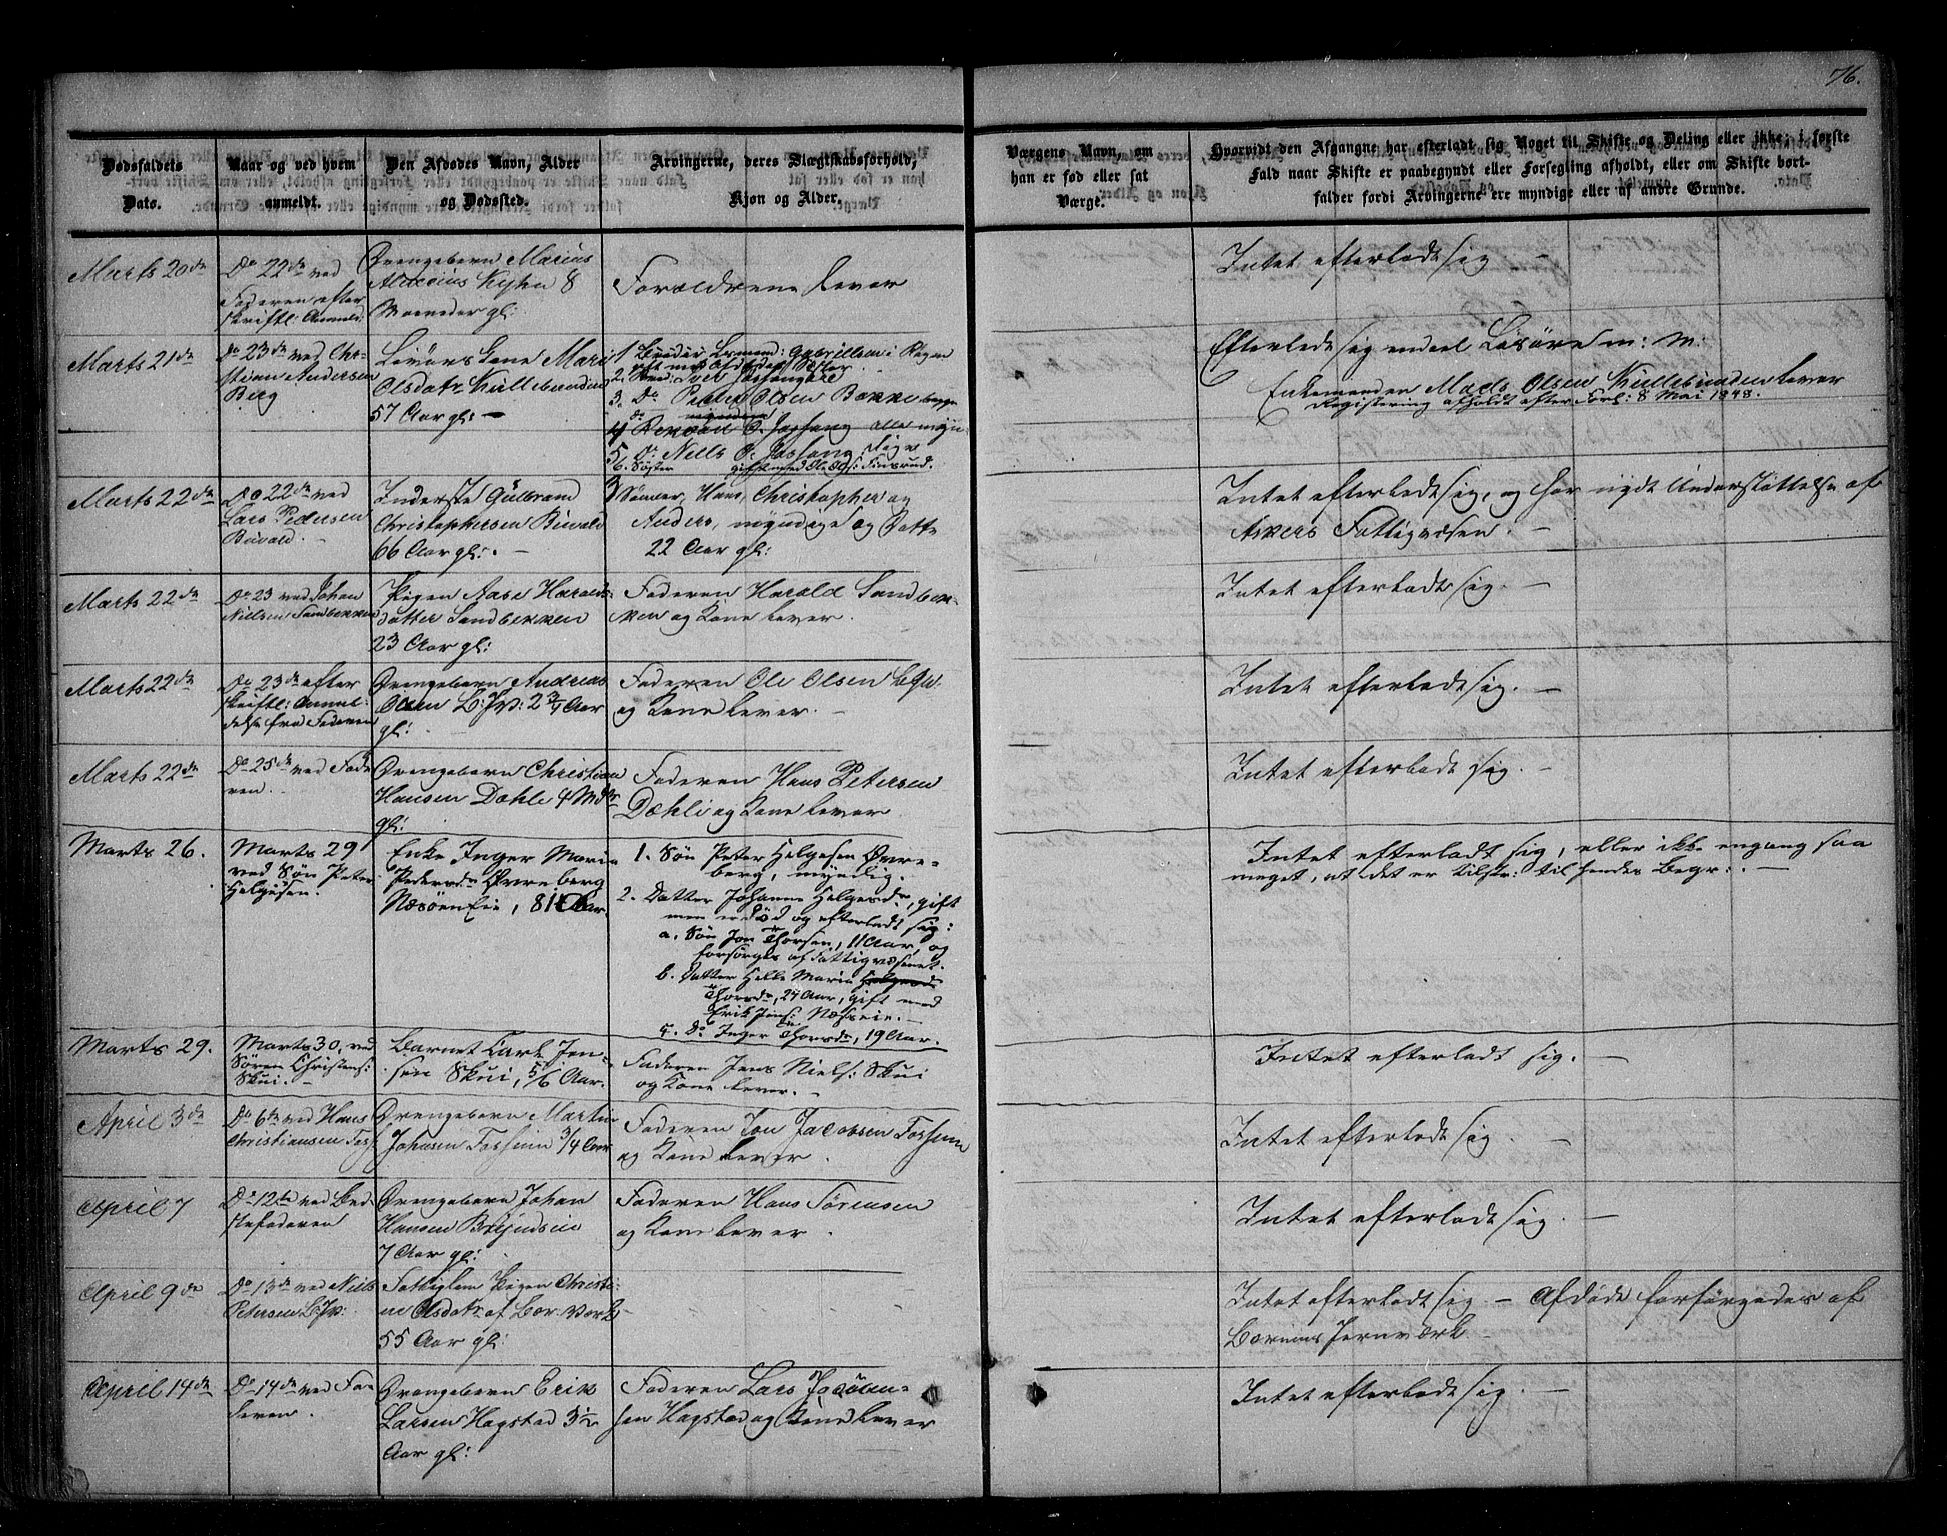 76.
Dødsfaldets
Dato.
Naar og ved hvem
anmeldt.
Den Afdødes Navn, Alder
og Dødssted.
Arvingerne, deres Slægtskabsforhold,
Kjøn og Alder.
Værgens Navn, om
han er fød eller sat
Værge.
Hvorvidt den Afgangne har efterladt sig Noget til Skifte og Deling eller ikke; i første
Fald naar Skifte er paabegyndt eller Forsegling afholdt, eller om Skifte bort-
falder fordi Arvingerne ere myndige eller af andre Grunde.
Marts 20de
Do 22de ved
Faderen efter
skriftl: Anmeld:
Drengebarn Marius
Kyhn 8
Maaneder gl:
Forældrene lever
Intet efterladt sig —
Marts 21de
Do 23de ved Chr-
stian Andersen
Berg
Mari
Olsdatr Kullebunden
57 Aar gl: —
1 Broder
2.
3. Do Peder Olsen Bakke
myndige
4 O. Jossang alle myn-
5 Do Niels O. Jossang dige
6. Søster gift med Ol. Ols: Finsrud.
Efterladt sig endeel Løsøre m: M:
Enkemanden Mads Olsen Kullebunden lever
Registrering afholdt efter Forl: 8 Mai 1848.
Marts 22de
Do 22de ved
Lars Pedersen
Buvald. —
Inderste Gulbrand
Christophersen Buvald
66 Aar gl: —
3 Sønner, Hans, Christopher og
Anders, myndige og Datte
22 Aar gl:
Intet efterladt sig, og har nydt Understøttelse af
Askers Fattigvæsen. —
Marts 22de
Do 23 ved Johan
Nielsen Sandbekken
Pigen Aase Haralds-
datter Sandbekken
23 Aar gl:
Faderen Harald Sandbek-
ken og Kone lever.
Intet efterladt sig. —
Marts 22de
Do 23de efter
skriftl: Anmel-
delse fra Faderen
Drengebarn Andreas
Olsen B: Jv: 2 3/4 Aar
gl:
Faderen Ole Olsen
og Kone lever. —
Intet efterladt sig. —
Marts 22de
Do 25de ved Fade
ren. —
Drengebarn Christian
Hansen Dæhle 4 Mdr
gl:
Faderen Hans Petersen
Dæhli og Kone lever
Intet efterladt sig. —
Marts 26.
Marts 29
ved Søn Peter
Helgesen.
Enke Inger Marie
Pedersdr Øvreberg
Næsøen Eie, 81 Aar.
1. Søn Peter Helgesen Øvre-
berg, myndig.
2. Datter Johanne Helgesdr, gift
men er død og efterladt sig:
a. Søn Jon Thorsen, 11 Aar, og
forsørges af Fattigvæsenet.
b. Datter Helle Marie
Thorsdr, 24 Aar, gift med
Erik Jens: Næseie. —
c. Do Inger Thorsdr, 19 Aar.
Intet efterladt sig, eller ikke engang saa
meget, at det er tilstr: til hendes Begr: . —
Marts 29.
Marts 30, ved
Søren Christens:
Skui. —
Barnet Carl Jen-
sen Skui, 5/6 Aar.
Faderen Jens Niels: Skui
og Kone lever. —
Intet efterladt sig. —
April 3de
Do 6te ved Hans
Christiansen Foss
Drengebarn Martin
Johnsen Fossum 3/4 Aar
Faderen Jon Jacobsen Fossum
og Kone lever.
Intet efterladt sig. —
April 7
Do 12te ved Bed-
stefaderen
Drengebarn Johan
Hansen
7 Aar gl:
Faderen Hans Sørensen
og Kone lever.
Intet efterladt sig. —
April 9de
Do 13de ved Niels
Petersen B: Jv:
Fattiglem Pigen Christi-
ne Olsdatr af Bær: Værk
55 Aar gl:
—
Intet efterladt sig. — Afdøde forsørgedes af
Bærums Jernværk —
April 14de
Do 14de ved Fa-
deren.
Drengebarn Erik
Larsen Hagstad 3 1/2
Aar gl:
Faderen Lars
sen Hagstad og Kone lever
Intet efterladt sig. —